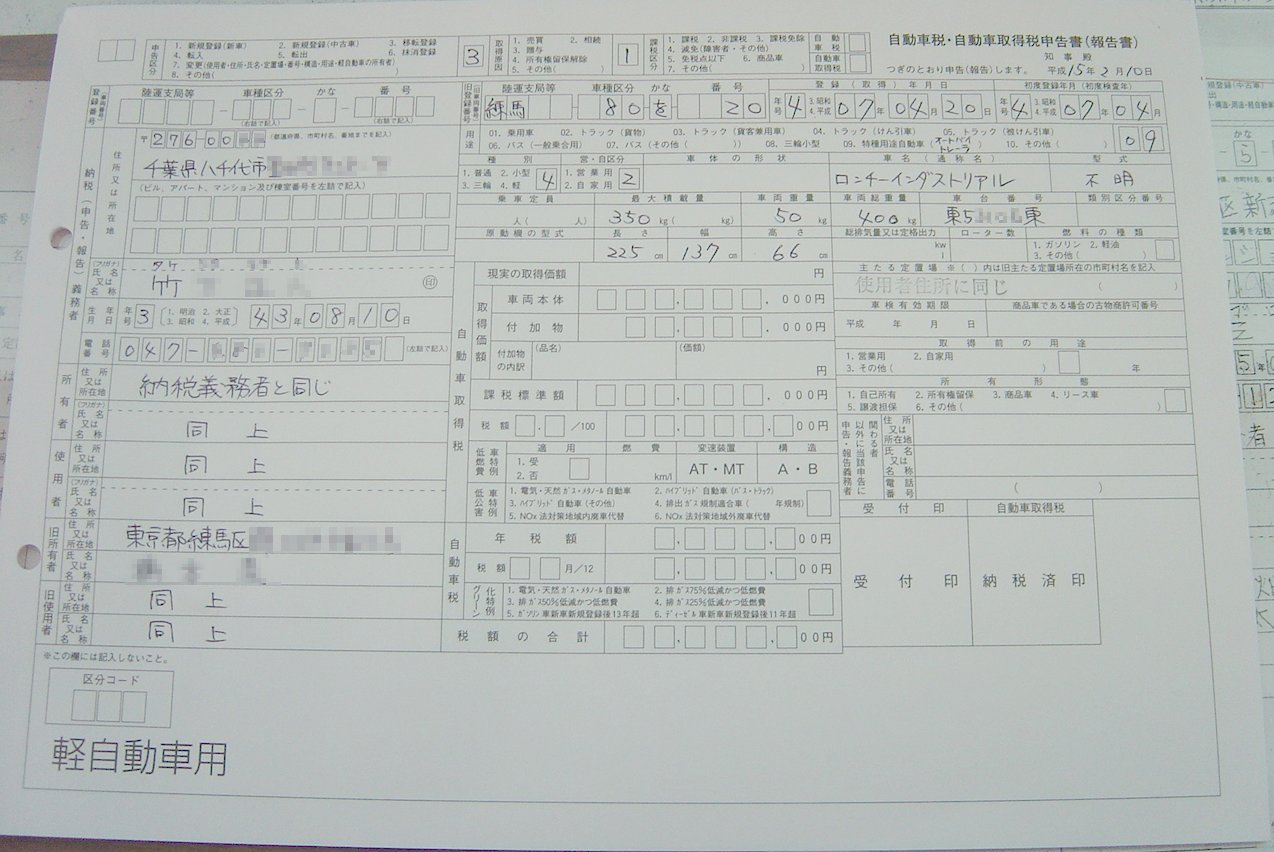 自動車税・自動車取得税申告書(報告書)
知事殿
つぎのとおり申告(報告)します。 平成15年2月10日
申告区分
1. 新規登録(新車) 2. 新規登録(中古車) 3. 移転登録
4. 転入 5. 転出 6. 抹消登録
7. 変更(使用者・住所・氏名・定置場・番号・構造・用途・軽自動車の所有者)
8. その他( )
3
取得原因
1. 売買 2. 相続
3. 贈与
4. 所有権留保解除
5. その他( )
1
課税区分
1. 課税 2. 非課税 3. 課税免除
4. 減免(障害者・その他)
5. 免税点以下 6. 商品車
7. その他( )
自動車税
自動車取得税
登録番号
陸運支局等 車種区分 かな 番号
(右詰で記入) (右詰で記入)
陸運支局等 車種区分 かな 番号
練馬 - 80 を - 20
登録(取得)年月日
年号 4 3.昭和 4.平成 07年04月20日
初度登録年月(初度検査年)
年号 4 3.昭和 4.平成 07年04月
用途
01. 乗用車 02. トラック(貨物) 03. トラック(貨客兼用車) 04. トラック(けん引車) 05. トラック(被けん引車)
06. バス(一般乗合用) 07. バス(その他( )) 08. 三輪小型 09. 特種用途自動車(オートバイトレーラ) 10. その他( )
09
納税(申告・報告)義務者
住所又は所在地
〒27600 (都道府県、市町村名、番地までを記入)
千葉県八千代市
(ビル、アパート、マンション及び棟室番号を左詰で記入)
(フリガナ) タケ
氏名又は名称
竹 印
生年月日 年号 3 1. 明治 2. 大正 3. 昭和 4. 平成 43年08月10日
電話番号 047- (左詰で記入)
種別 営・自区分 車体の形状 車名(通称名) 型式
1. 普通 2. 小型
3. 三輪 4. 軽
4
1. 営業用
2. 自家用
2
ロンチーインダストリアル 不明
乗車定員 最大積載量 車両重量 車両総重量 車台番号 類別区分番号
人( 人) 350kg( kg) 50kg 400kg 東5 東
原動機の型式 長さ 幅 高さ 総排気量又は定格出力 ローター数 燃料の種類
225cm 137cm 66cm kw l
1. ガソリン 2. 軽油
3. その他( )
主たる定置場 ※( )内は旧主たる定置場所在の市町村名を記入
使用者住所に同じ ( )
車検有効期限 商品車である場合の古物商許可番号
平成 年 月 日
取得前の用途
1. 営業用 2. 自家用
3. その他( ) 年
所有形態
1. 自己所有 2. 所有権留保 3. 商品車 4. リース車
5. 譲渡担保 6. その他( )
自動車取得税
現実の取得価額 円
取得価額
車両本体 000円
付加物 000円
付加物の内訳 (品名) (価額) 円
課税標準額 000円
税額 /100 00円
低燃費車特例
適用 燃費 変速装置 構造
1. 受
2. 否
km/l AT・MT A・B
低公害車特例
1. 電気・天然ガス・メタノール自動車 2. ハイブリッド自動車(バス・トラック)
3. ハイブリッド自動車(その他) 4. 排出ガス規制適合車( 年規制)
5. NOx法対策地域内廃車代替 6. NOx法対策地域外廃車代替
自動車税
年税額 00円
税額 月/12 00円
グリーン化特例
1. 電気・天然ガス・メタノール自動車 2. 排ガス75%低減かつ低燃費
3. 排ガス50%低減かつ低燃費 4. 排ガス25%低減かつ低燃費
5. ガソリン車新車新規登録後13年超 6. ディーゼル車新車新規登録後11年超
税額の合計 00円
所有者
住所又は所在地 納税義務者と同じ
(フリガナ)
氏名又は名称 同上
使用者
住所又は所在地 同上
(フリガナ)
氏名又は名称 同上
旧所有者
住所又は所在地 東京都練馬区
氏名又は名称
旧使用者
住所又は所在地 同上
氏名又は名称 同上
住所又は所在地
氏名又は名称
電話番号 ( )
受付印 自動車取得税
受付印 納税済印
※この欄には記入しないこと。
区分コード
軽自動車用